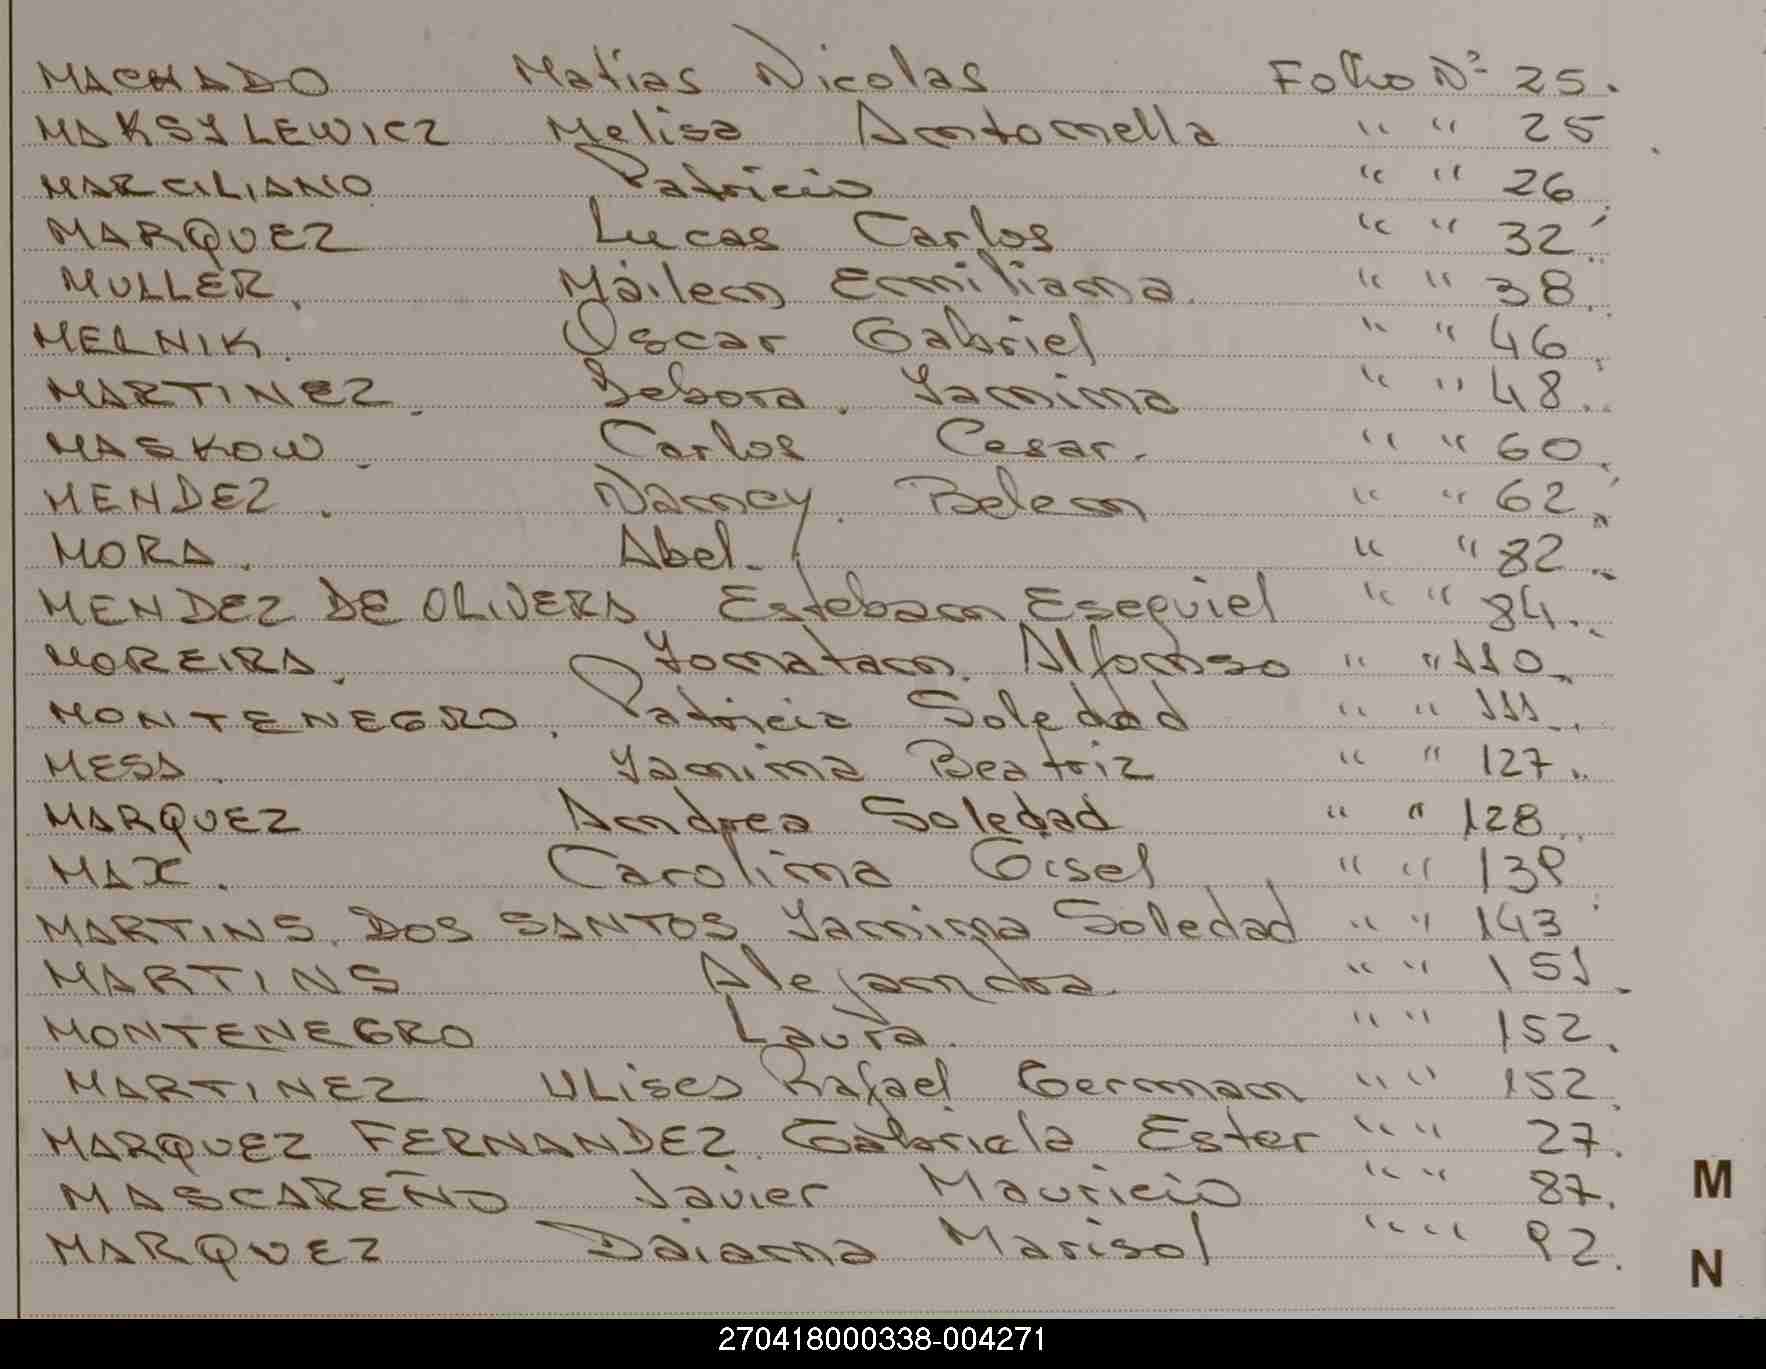 MACHADO Matias Nicolas Folio Nº 25.
MAKSYLEWICZ Melisa Antonella " " 25.
MARCILIANO Patricio " " 26.
MARQUEZ Lucas Carlos " " 32.
MULLER. Mailen Emiliana. " " 38.
MELNIK. Oscar Gabriel " " 46.
MARTINEZ. Debora. Yanina " " 48.
MASKOW. Carlos Cesar. " " 60.
MENDEZ. Nancy. Belen " " 62.
MORA. Abel. " " 82.
MENDEZ DE OLIVERA Esteban Esequiel " " 84.
MOREIRA. Yonatan. Alfonso " " 110.
MONTENEGRO. Patricia Soledad " " 111.
MESA. Yanina Beatriz " " 127.
MARQUEZ Andrea Soledad " " 128.
MAX. Carolina Gisel " " 139
MARTINS. DOS SANTOS Yanina Soledad " " 143
MARTINS Alejandra. " " 151.
MONTENEGRO Laura. " " 152.
MARTINEZ Ulises Rafael German " " 152.
MARQUEZ FERNANDEZ. Gabriela Ester " " 27.
MASCAREÑO Javier Mauricio " " 87.
MARQUEZ Daiana Marisol " " 92.
M
N
270418000338-004271